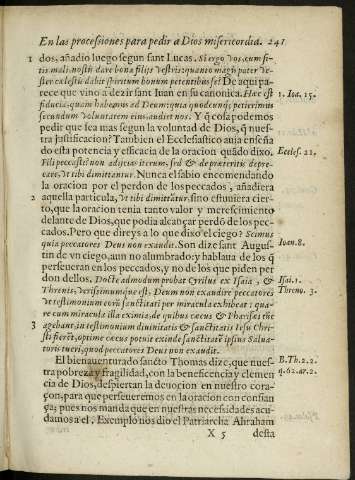 En las processiones para pedir a Dios misericordia. 241
1 dos, añadio luego segun sant Lucas. Si ergo vos, cum si-
tis mali, nostis dare bona filijs vestris: quanto magis pater ve-
ster cælestis dabit spiritum bonum petentibus se? De aqui pa-
rece que vino a dezir sant Iuan en su canonica. Hæc est
fiducia, quam habemus ad Deum: quia quodcunque petierimus
secundum voluntatem eius, audit nos. Y que cosa podemos
pedir que sea mas segun la voluntad de Dios, que nues-
tra justificacion? Tambien el Ecclesiastico auia enseña
do esta potencia y efficacia de la oracion quãdo dixo,
Fili peccasti? non adijcias iterum, sed & de præteritis depre-
care, vt tibi dimittantur. Nunca el sabio encomendando
la oracion por el perdon de los peccados, añadiera
2 aquella particula, vt tibi dimittãtur. sino estuuiera cier-
to, que la oracion tenia tanto valor y merescimiento
delante de Dios, que podia alcançar perdõ de los pec-
cados. Pero que direys a lo que dixo el ciego? Scimus
quia peccatores Deus non exaudit. Son dize sant Augus-
tin de vn ciego, aun no alumbrado: y hablaua de los q̃
perseueran en los peccados, y no de los que piden per
don dellos. Docte admodum probat Cyrillus ex Isaia, &
Threnis, verissimumque est. Deum non exaudire peccatores
vt testimonium eorũ sanctitati per miracula exhibeat: qua-
re cum miracula illa eximia, de quibus cæcus & Pharisei tũc
3 agebant, in testimonium diuinitatis & sanctitatis Iesu Chri-
sti fierẽt, optime cæcus potuit ex inde sanctitatẽ ipsius Salua-
toris tueri, quod peccatores Deus non exaudit.
El bienauenturado sancto Thomas dize, que nues-
tra pobreza y fragilidad, con la beneficencia y clemen
cia de Dios, despiertan la deuocion en nuestro cora-
çon, para que perseueremos en la oracion con confian
ça; pues nos manda que en nuestras necessidades acu-
damos a el. Exemplo nos dio el Patriarcha Abraham
X 5 desta
1. Ioa. 15.
Eccles. 21.
Ioan. 8.
Isai. 1.
Threno. 3.
B. Th. 2. 2.
q. 62. ar. 2.